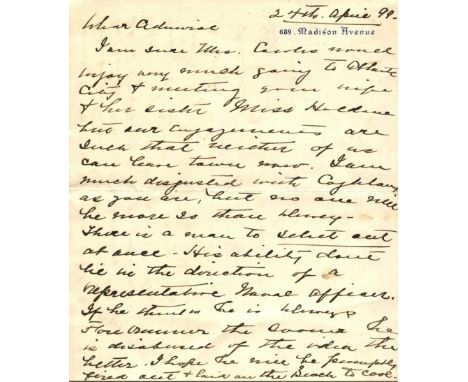 24th. April 99-
689. Madison Avenue
I am sure Mrs. would
enjoy very much going to Atlantic
City & meeting your wife
& her sister Miss
but our engagements are
such that neither of us
can leave town now. I am
much disgusted with Coghlan,
as you are, but no one will
be more so than Dewey-
There is a man to select out
at once - His ability don't
lie in the direction of a
representative Naval Officer.
If he thinks he is Dewey's
the sooner he
is disabused of the idea the
better. I hope he will be promptly
fired out & laid on the Beach to cool-